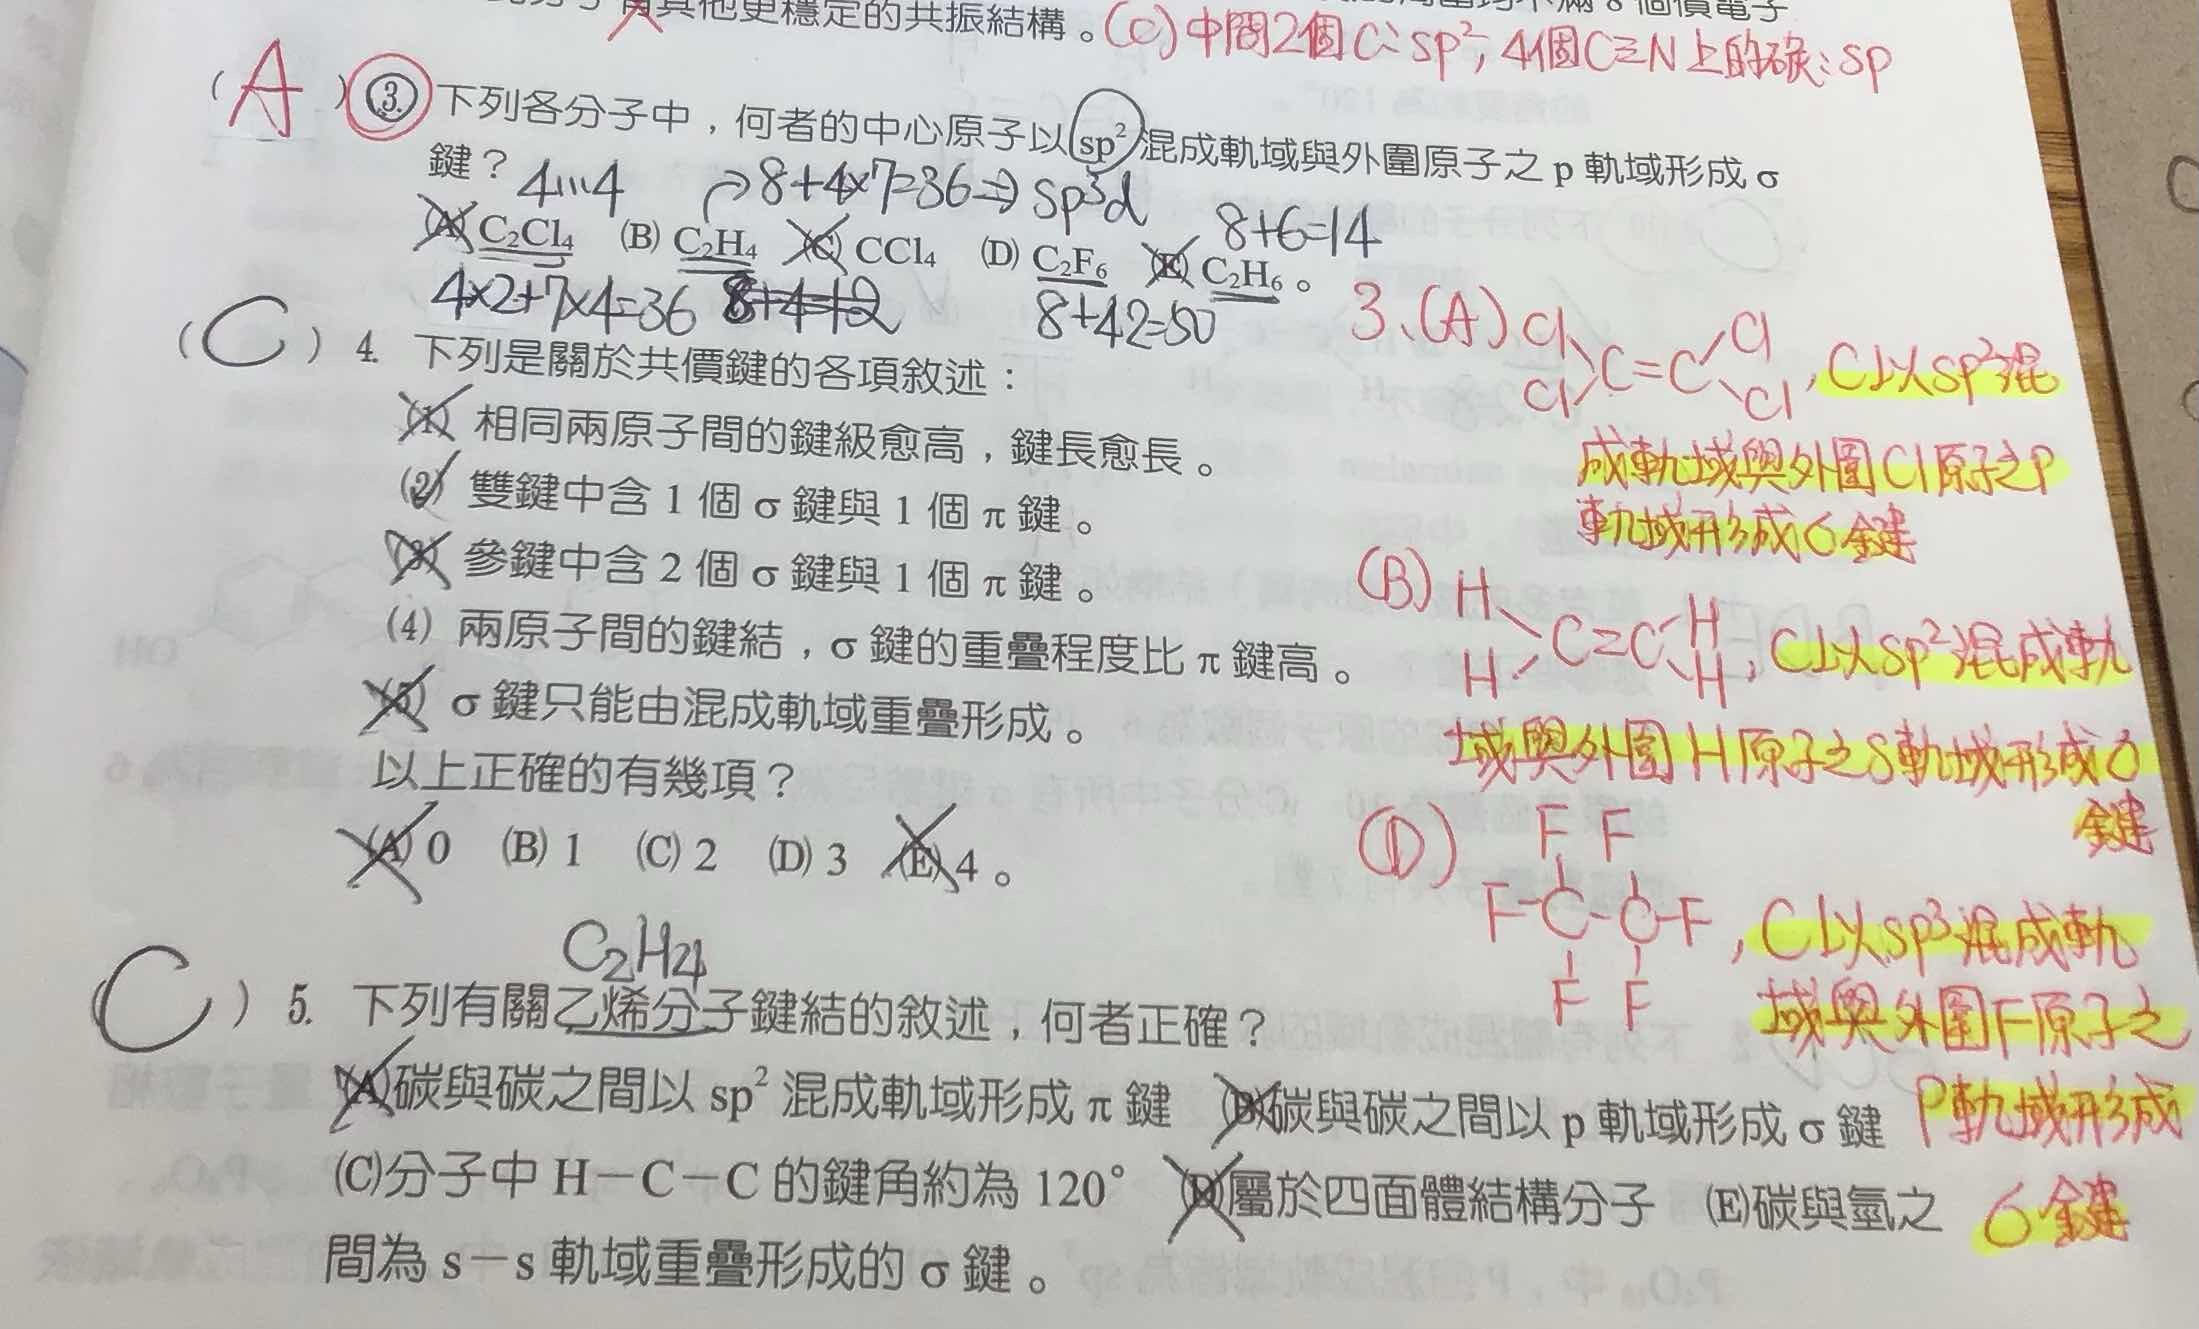 其他更穩定的共振結構。(C)中間2個C:sp²,4個C≡N上的碳:sp
(A)3. 下列各分子中,何者的中心原子以sp²混成軌域與外圍原子之p軌域形成σ
鍵?
4...4
→8+4×7=36⇒sp³d
8+6=14
(A) C₂Cl₄ (B) C₂H₄ (C) CCl₄ (D) C₂F₆ (E) C₂H₆。
4×2+7×4=36
8+4=12
8+42=50
(C)4. 下列是關於共價鍵的各項敘述:
(1) 相同兩原子間的鍵級愈高,鍵長愈長。
(2) 雙鍵中含1個σ鍵與1個π鍵。
(3) 參鍵中含2個σ鍵與1個π鍵。
(4) 兩原子間的鍵結,σ鍵的重疊程度比π鍵高。
(5) σ鍵只能由混成軌域重疊形成。
以上正確的有幾項?
(A) 0 (B) 1 (C) 2 (D) 3 (E) 4。
C₂H₄
(C)5. 下列有關乙烯分子鍵結的敘述,何者正確?
(A)碳與碳之間以sp²混成軌域形成π鍵 (B)碳與碳之間以p軌域形成σ鍵
(C)分子中H-C-C的鍵角約為120° (D)屬於四面體結構分子 (E)碳與氫之
間為s-s軌域重疊形成的σ鍵。
3、(A) Cl Cl
C=C
Cl Cl
,C以sp²混
成軌域與外圍Cl原子之P
軌域形成σ鍵
(B) H H
C=C
H H
,C以sp²混成軌
域與外圍H原子之S軌域形成σ
鍵
(D) F F
F-C-C-F
F F
,C以sp³混成軌
域與外圍F原子之
P軌域形成
σ鍵